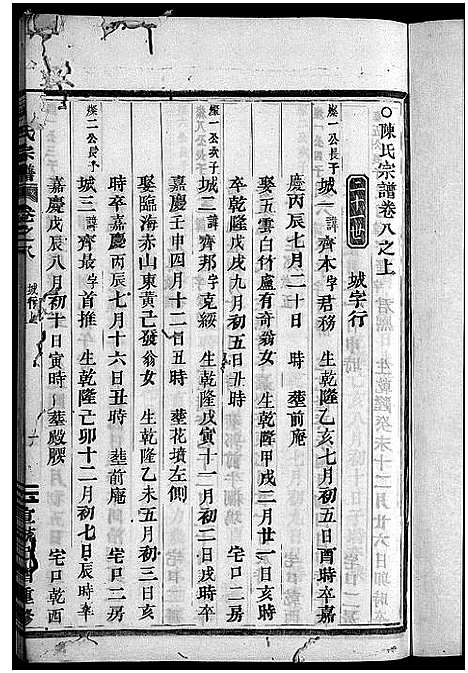 ○陳氏宗譜卷八之上
城字行
燦一公長子
城一 諱齊木字君務 生乾隆乙亥七月初五日酉時卒嘉
慶丙辰七月二十日 時 塟前庵
娶五雲白竹盧有奇翁女 生乾隆甲戌三月廿一日亥時
卒乾隆戊戌九月初五日丑時 宅口二房
燦一公次子
城二 諱齊邦字克綏 生乾隆戊寅十一月初二日戌時卒
嘉慶壬申四月十二日丑時 塟花墳左側
娶臨海赤山東黄己發翁女 生乾隆乙未五月初三日亥
時卒嘉慶丙辰七月十六日丑時 塟前庵 宅口二房
燦二公長子
城三 諱齊最字首推 生乾隆己卯十二月初七日辰時卒
嘉慶戊辰八月初十日寅時 塟殿腰 宅口乾西
氏宗譜
卷之八
城行上